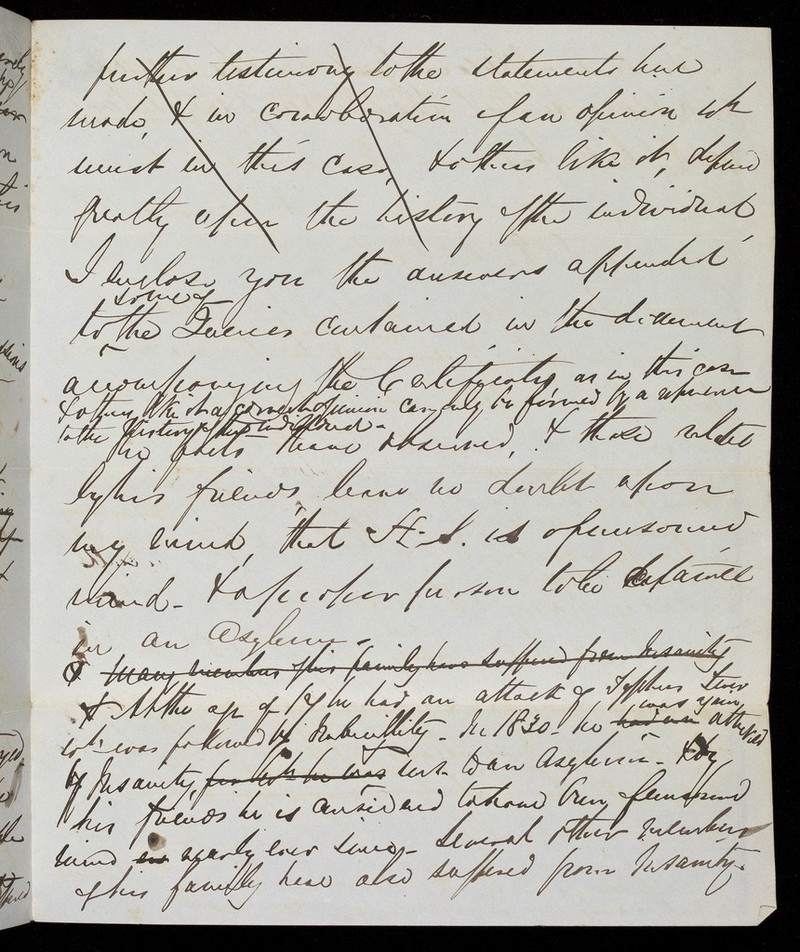 further testimony to the statements here
made, & in corroboration of an opinion wh
must in this case, & others like it, depend
greatly upon the history of the individual,
I enclose you the answers appended
some of
to the Queries contained in the document
accompanying the Certificate, as in this case
& others like it a correct opinion can only be formed by a reference
to the history of the individual -
The facts I have observed, & those related
by his friends, leave no doubt upon
my mind, that H. S. is of unsound
mind - & a proper person to be detained
in an Asylum -
& Many members of his family have suffered from Insanity
& At the age of 19 he had an attack of Typhus Fever
wh: was followed by Imbecillity - In 1830 - he had was again attacked
by Insanity, for wh he was sent to an Asylum - & by
his friends he is considered to have been of unsound
mind nearly ever since - Several other members
of his family have also suffered from Insanity.